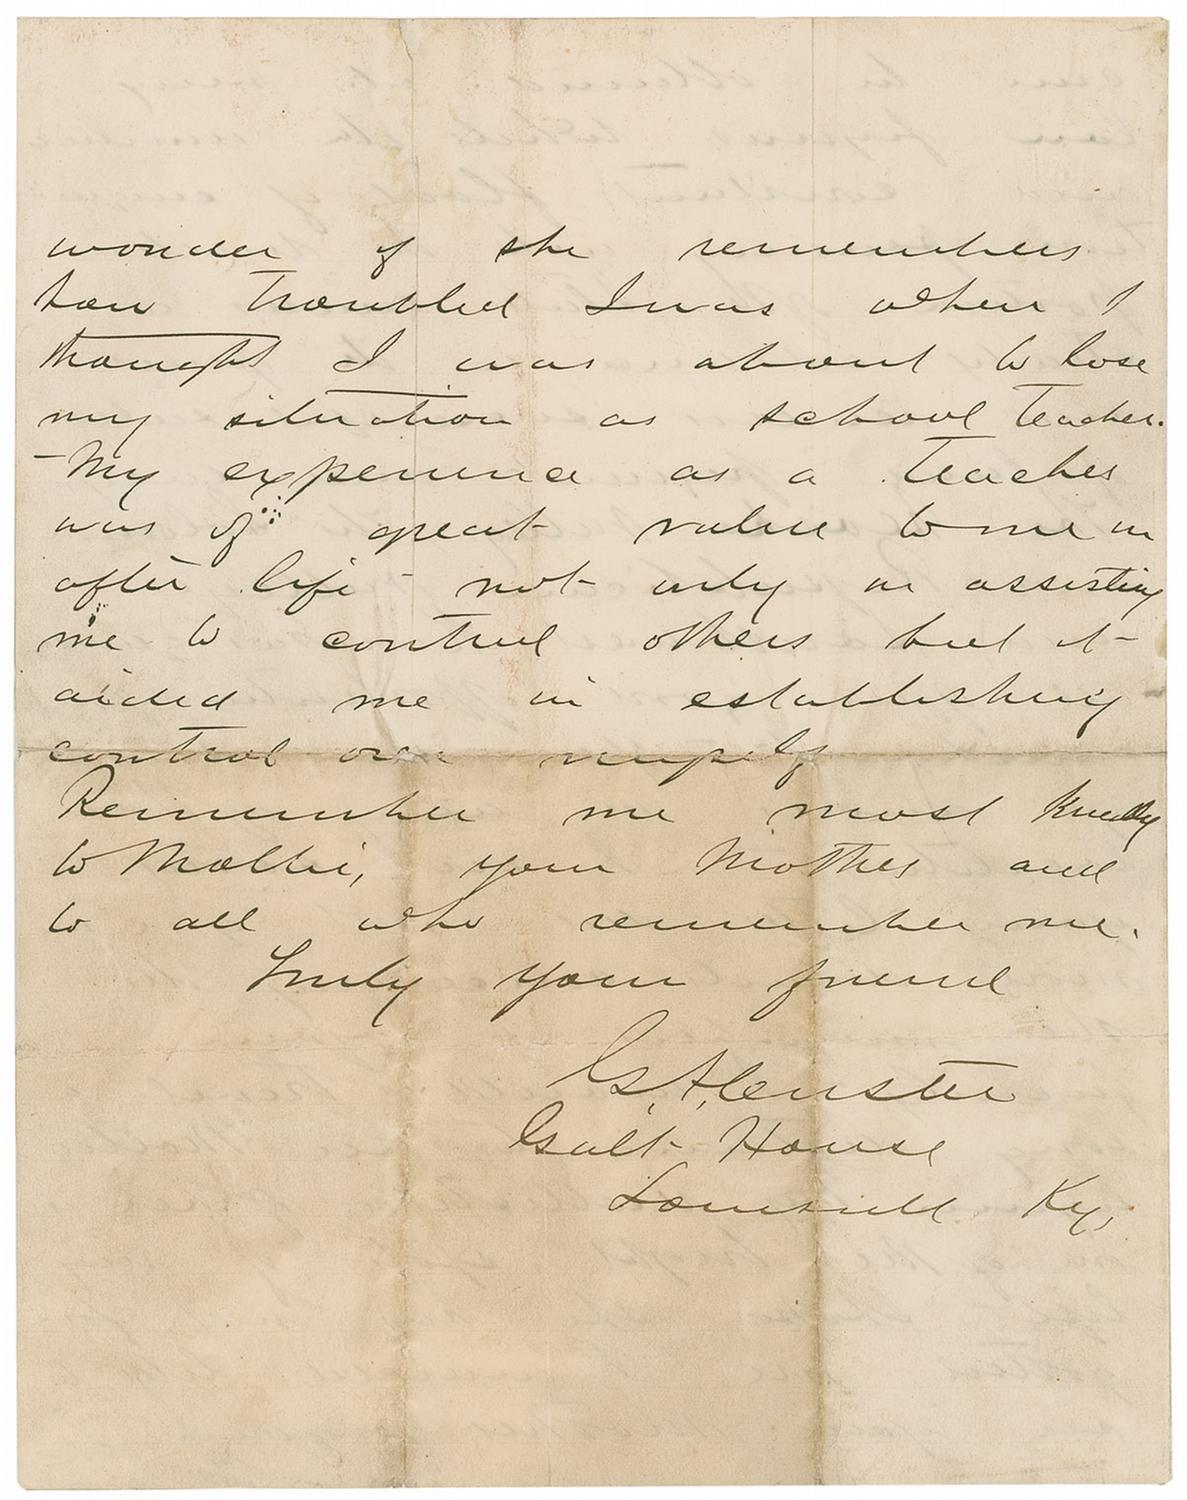 wonder if she remembers
how troubled I was when I
thought I was about to lose
my situation as school teacher.
- My experience as a teacher
was of great value to me in
after life - not only in assisting
me to control others but it
aided me in establishing
control over myself
Remember me most kindly
to Mollie, your Mother and
to all who remember me.
Truly your friend
G. A. Custer
Galt House
Louisville Ky,